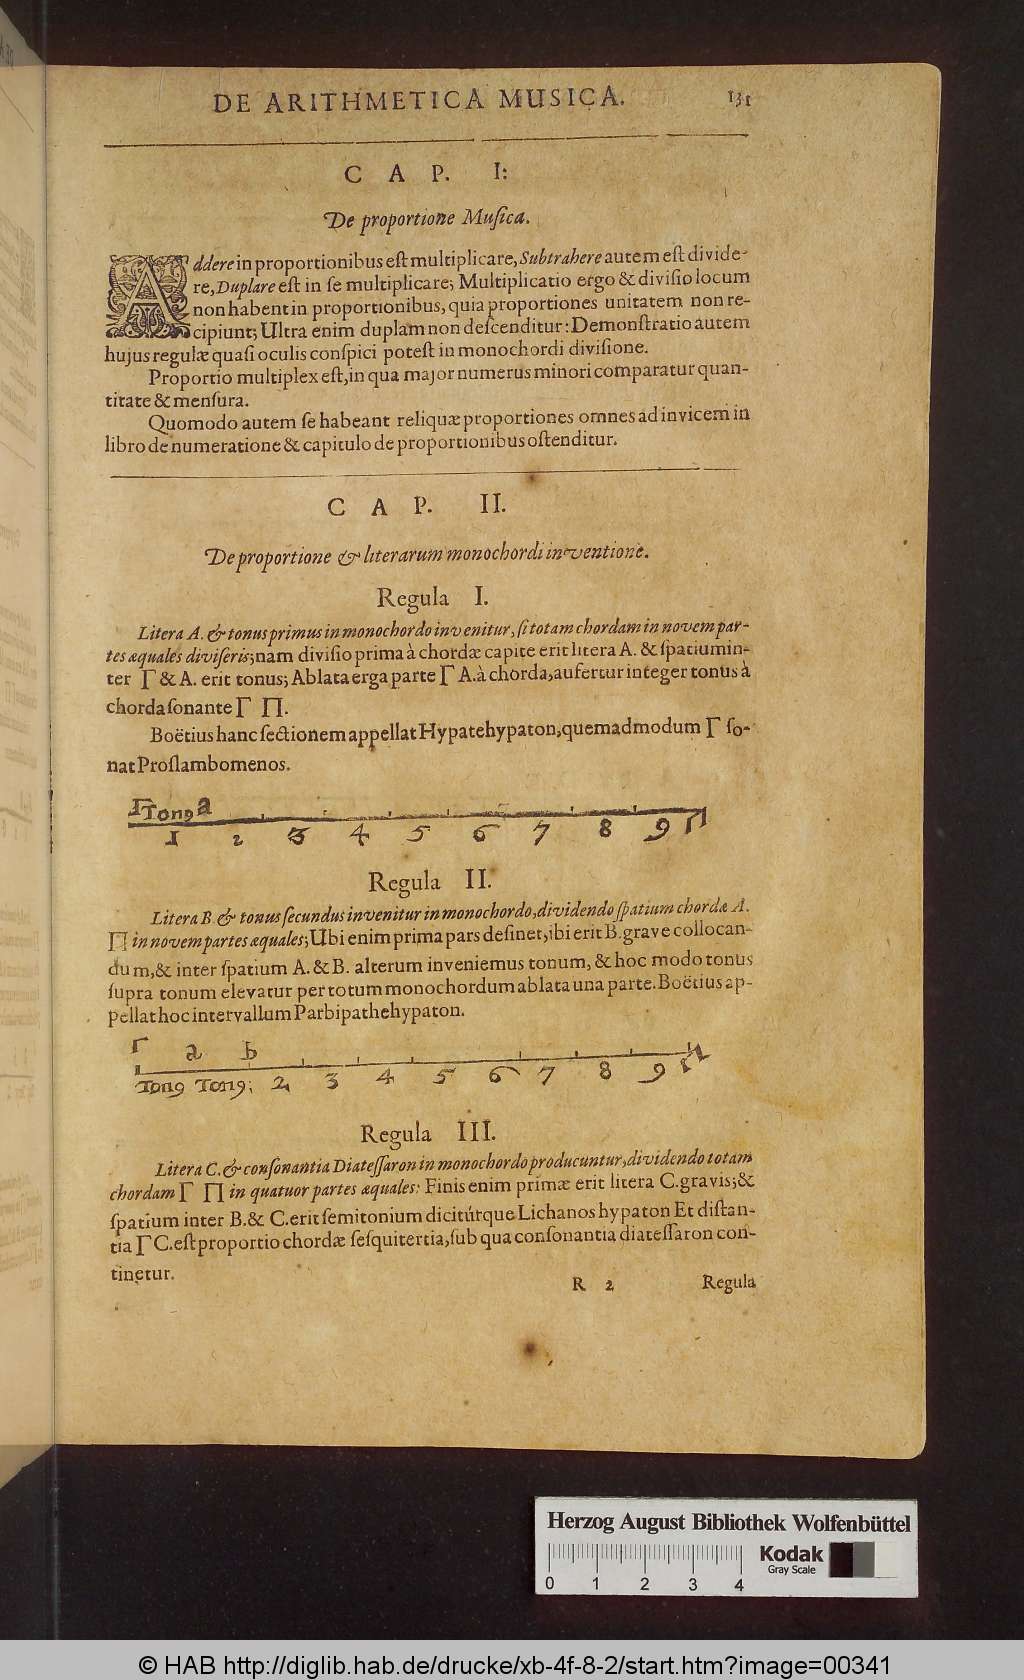 DE ARITHMETICA MUSICA. 131
CAP. I:
De proportione Musica.
Addere in proportionibus est multiplicare, Subtrahere autem est divide-
re, Duplare est in se multiplicare; Multiplicatio ergo & divisio locum
non habent in proportionibus, quia proportiones unitatem non re-
cipiunt; Ultra enim duplam non descenditur: Demonstratio autem
hujus regulæ quasi oculis conspici potest in monochordi divisione.
Proportio multiplex est, in qua major numerus minori comparatur quan-
titate & mensura.
Quomodo autem se habeant reliquæ proportiones omnes ad invicem in
libro de numeratione & capitulo de proportionibus ostenditur.
CAP. II.
De proportione & literarum monochordi inventione.
Regula I.
Litera A. & tonus primus in monochordo invenitur, si totam chordam in novem par-
tes æquales diviseris; nam divisio prima à chordæ capite erit litera A. & spatium in-
ter Γ & A. erit tonus; Ablata erga parte Γ A. à chorda, aufertur integer tonus à
chorda sonante Γ Π.
Boëtius hanc sectionem appellat Hypatehypaton, quemadmodum Γ so-
nat Proslambomenos.
Γ Tonꝰ a
1 2 3 4 5 6 7 8 9 Π
Regula II.
Litera B & tonus secundus invenitur in monochordo, dividendo spatium chordæ A.
Π in novem partes æquales; Ubi enim prima pars desinet, ibi erit B. grave collocan-
dum, & inter spatium A. & B. alterum inveniemus tonum, & hoc modo tonus
supra tonum elevatur per totum monochordum ablata una parte. Boëtius ap-
pellat hoc intervallum Parbipathehypaton.
Γ a b
Tonꝰ Tonꝰ; 2 3 4 5 6 7 8 9 Π
Regula III.
Litera C. & consonantia Diatessaron in monochordo producuntur, dividendo totam
chordam Γ Π in quatuor partes æquales: Finis enim primæ erit litera C. gravis; &
spatium inter B. & C. erit semitonium dicitúrque Lichanos hypaton Et distan-
tia Γ C. est proportio chordæ sesquitertia, sub qua consonantia diatessaron con-
tinetur.
R 2 Regula
Herzog August Bibliothek Wolfenbüttel
Kodak
Gray Scale
0 1 2 3 4
© HAB http://diglib.hab.de/drucke/xb-4f-8-2/start.htm?image=00341